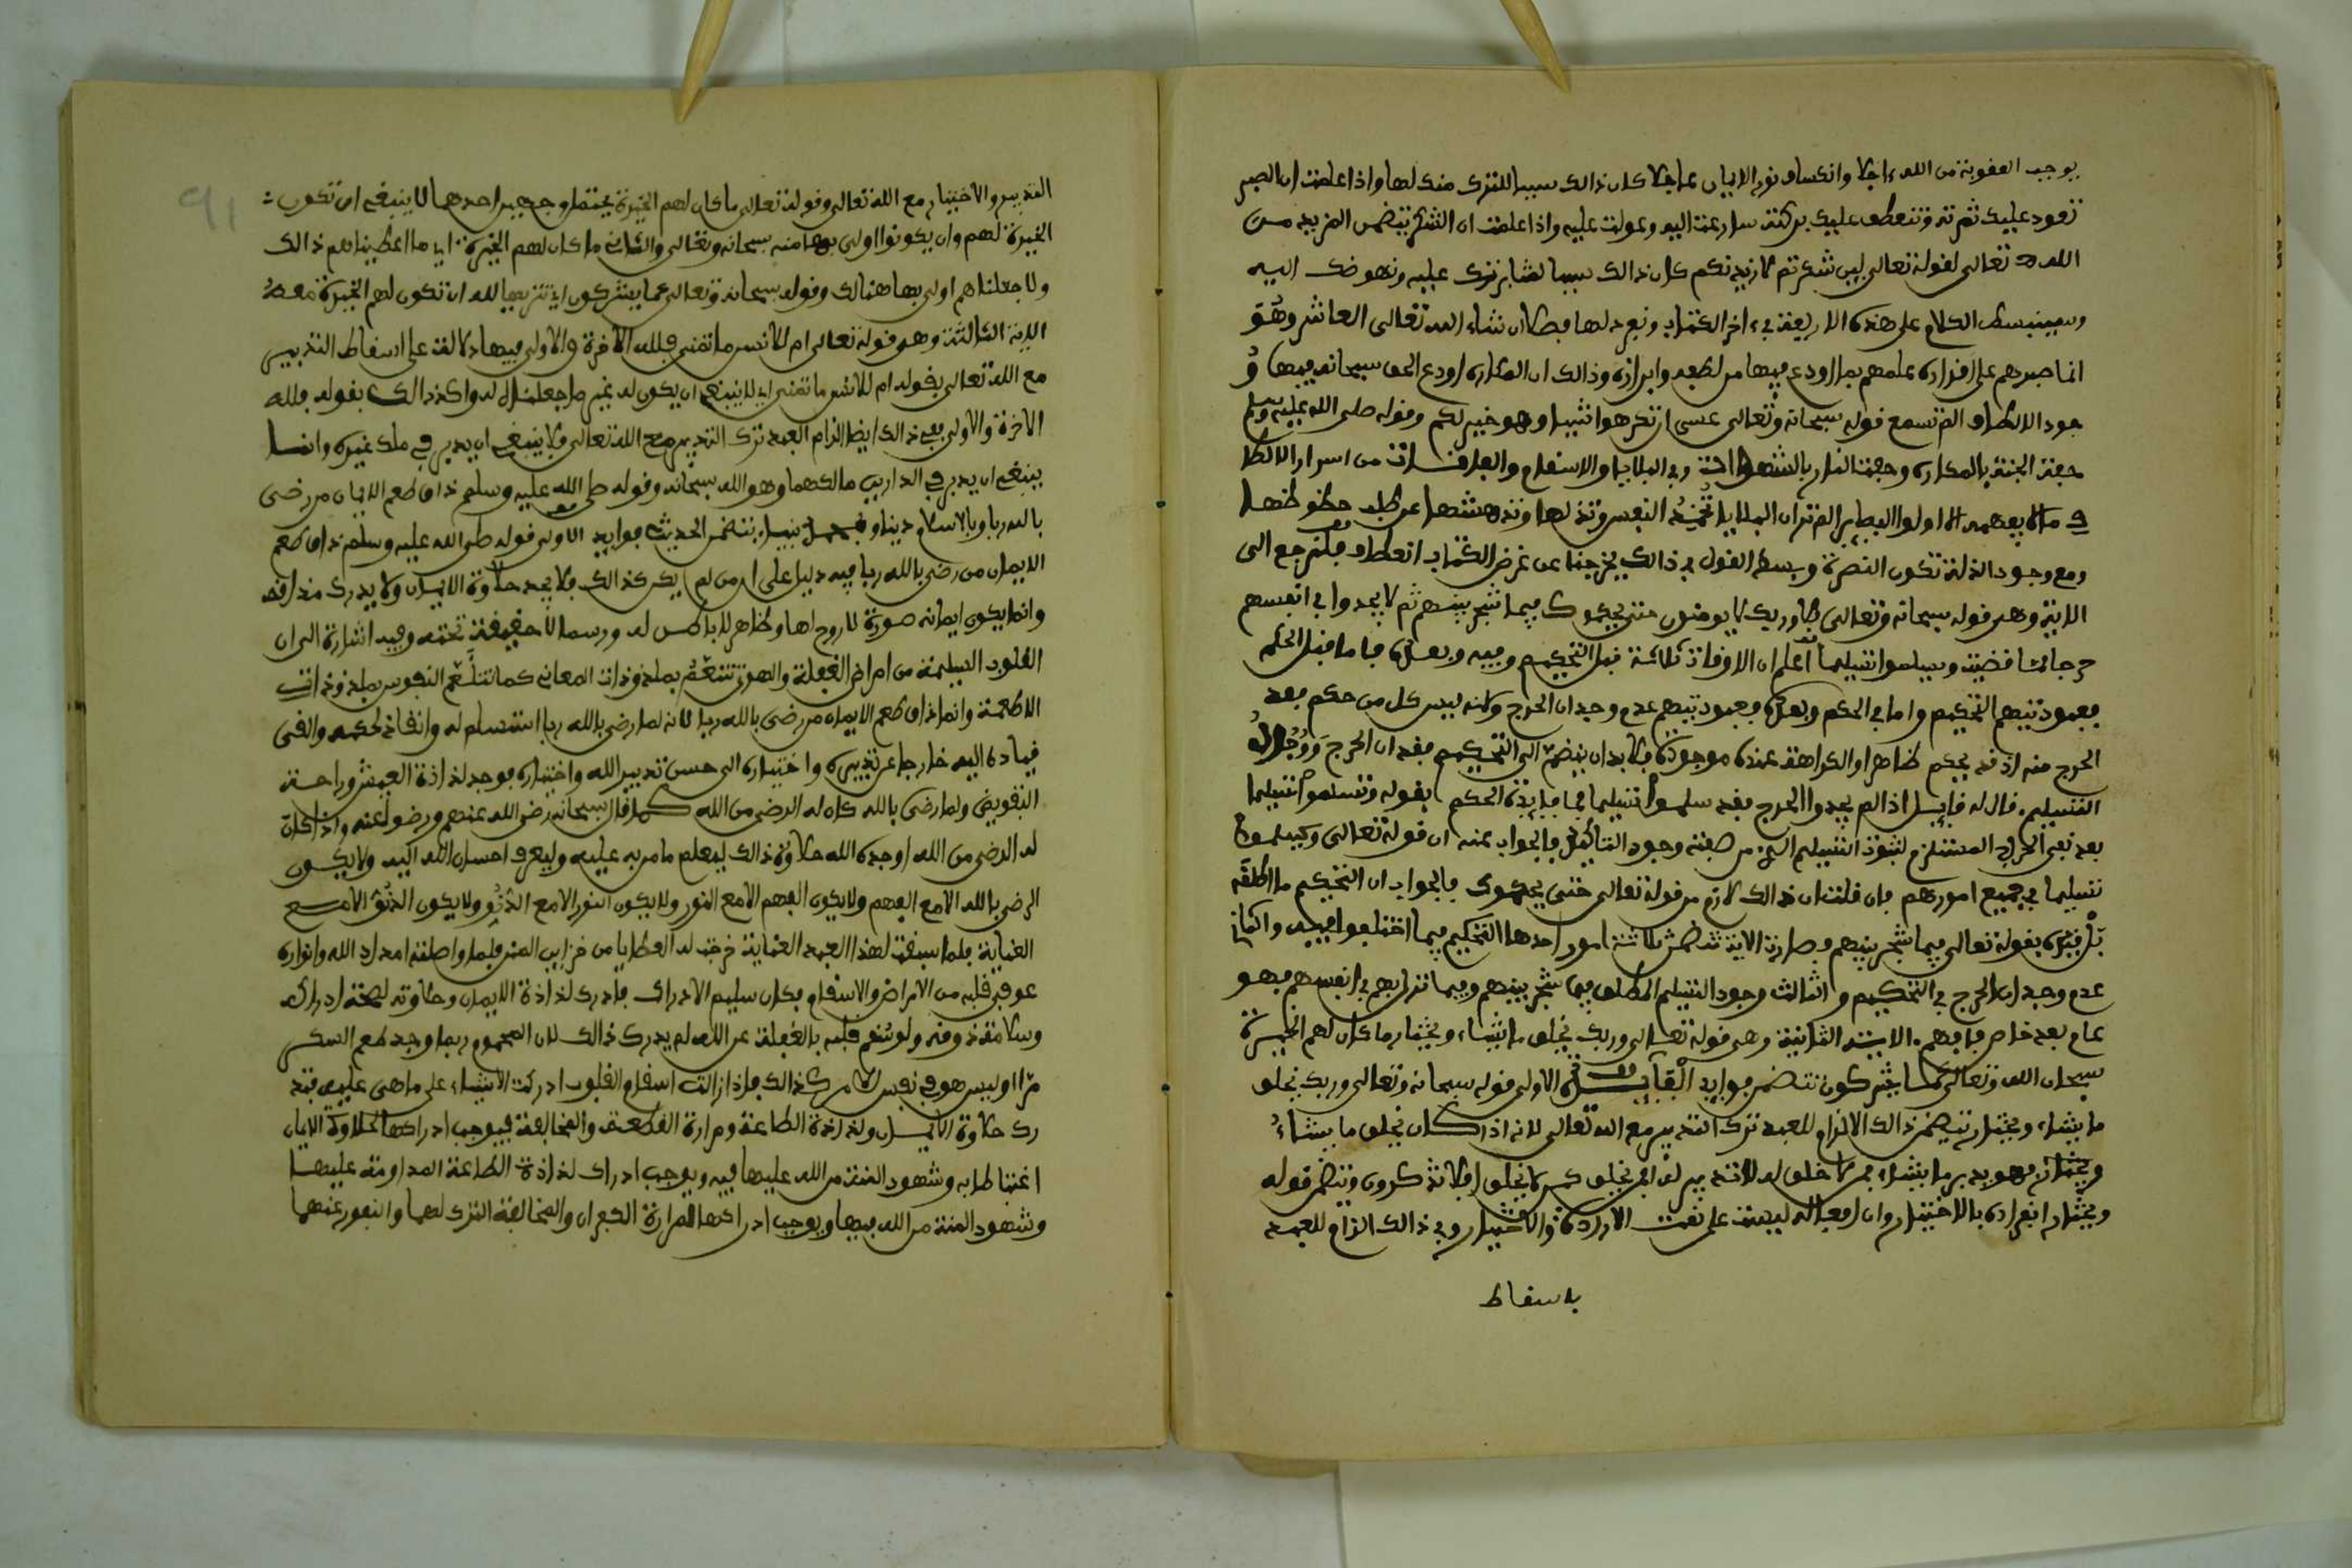 يوجب العقوبة من الله ءاجلا وانكساف نور الايمان عاجلا كان ذالك سببا للترك منك لها واذا علمت ان الصبر
تعود عليك ثمرته وتنعطف عليك بركته سارعت اليه وعولت عليه واذا علمت ان الشكر يتضمن المزيد من
الله تعالى لقوله تعالى لين شكرتم لازيدنكم كان ذالك سببا لمثابرتك عليه ونهوضك اليه
وسينبسط الكلام على هذه الاربعة في ءاخر الكتاب ونفرد لها فصلا ان شاء الله تعالى العاشر وهو
انما صبرهم على اقداره علمهم بما اودع فيها من لطفه وابراره وذالك ان المكاره اودع الحق سبحانه فيها و
جود الالطاف الم تسمع قوله سبحانه وتعالى عسى ان تكرهوا شيئا وهو خير لكم وقوله صلى الله عليه وسلم
حفت الجنة بالمكاره وحفت النار بالشهوات وفي البلايا والاسقام والفاقات من اسرار الالطا
ف ما لا يفهمه الا اولوا البصاير الم تر ان البلايا تخمد النفس وتذلها وتدهشها عن طلب حظوظها
ومع وجود الذلة تكون النصرة وبسط القول في ذالك يخرجنا عن غرض الكتاب انعطاف فلنرجع الى
الاية وهي قوله سبحانه وتعالى فلا وربك لا يومنون حتى يحكموك فيما شجر بينهم ثم لا يجدوا في انفسهم
حرجا مما قضيت ويسلموا تسليما اعلم ان الاوقات ثلاثة قبل التحكيم وفيه وبعده فاما قبل الحكم
فعبوديتهم التحكيم واما في الحكم وبعده فعبوديتهم عدم وجدان الحرج ولانه ليس كل من حكم فقد
الحرج منه اذ قد يحكم ظاهرا والكراهة عنده موجودة فلا بد ان ينضم الى التحكيم فقدان الحرج ووجدان
التسليم فان قال قايل اذا لم يجدوا الحرج فقد سلموا تسليما فما فايدة الحكم بقوله ويسلموا تسليما
بعد نفي الحرج المستلزم لثبوت التسليم الذي من صفته وجود التاكيد فالجواب عنه ان قوله تعالى ويسلموا
تسليما في جميع امورهم فان قلت ان ذالك لازم من قوله تعالى حتى يحكموك فالجواب ان التحكيم ما اطلقه
بل قيده بقوله تعالى فيما شجر بينهم فصارت الاية تتضمن ثلاثة امور احدها التحكيم فيما اختلفوا فيه والثاني
عدم وجدان الحرج في التحكيم والثالث وجود التسليم المطلق فيما شجر بينهم وفيما نزل بهم في انفسهم فهو
عام بعد خاص فافهم الاية الثانية وهي قوله تعالى وربك يخلق ما يشاء ويختار ما كان لهم الخيرة
سبحان الله وتعالى عما يشركون تتضمن فوايد الفايدة الاولى قوله سبحانه وتعالى وربك يخلق
ما يشاء ويختار تتضمن ذالك الالزام للعبد ترك التدبير مع الله تعالى لانه اذا كان يخلق ما يشاء
ويختار فهو يدبر ما يشاء فمن لا خلق له لا تدبير له افمن يخلق كمن لا يخلق افلا تذكرون وتتضمن قوله
ويختار انفراده بالاختيار وان افعاله ليست على نعت الارادة والاختيار وفي ذالك الزام للعبد
باسقاط
91
التدبير والاختيار مع الله تعالى وقوله تعالى ما كان لهم الخيرة يحتمل وجهين احدهما لا ينبغي ان تكون
الخيرة لهم وان يكونوا اولى بها منه سبحانه وتعالى والثاني ما كان لهم الخيرة اي ما اعطيناهم ذالك
ولا جعلناهم اولى بها هنالك وقوله سبحانه وتعالى عما يشركون اي تنزيها لله ان تكون لهم الخيرة معه
الاية الثالثة وهي قوله تعالى ام للانسن ما تمنى فلله الاخرة والاولى فيها دلالة على اسقاط التدبير
مع الله تعالى بقوله ام للانسن ما تمنى اي لا ينبغي ان يكون له غير ما جعلنا له واكد ذالك بقوله فلله
الاخرة والاولى ففي ذالك ايضا الزام العبد ترك التدبير مع الله تعالى فلا ينبغي ان يدبر في ملك غيره وانما
ينبغي ان يدبر في الدارين مالكهما وهو الله سبحانه وقوله صلى الله عليه وسلم ذاق طعم الايمان من رضى
بالله ربا وبالاسلام دينا وبمحمد نبيا يتضمن الحديث فوايد الاولى قوله صلى الله عليه وسلم ذاق طعم
الايمان من رضى بالله ربا فيه دليل على ان من لم يكن كذالك فلا يجد حلاوة الايمان ولا يدرك مذاقه
وانما يكون ايمانه صورة لا روح لها وظاهر لا باطن له ورسما لا حقيقة تحته وفيه اشارة الى ان
القلوب السليمة من امراض الغفلة والهوى تتنعم بملذوذات المعاني كما تتنعم النفوس بملذوذات
الاطعمة وانما ذاق طعم الايمان من رضى بالله ربا لانه لما رضى بالله ربا استسلم له وانقاد لحكمه والقى
قياده اليه خارجا عن تدبيره واختياره الى حسن تدبير الله واختياره فوجد لذاذة العيش وراحة
التفويض ولما رضى بالله كان له الرضى من الله كما قال سبحانه رضي الله عنهم ورضوا عنه واذا كان
له الرضى من الله اوجده الله حلاوة ذالك ليعلم ما من به عليه وليعرف احسان الله اليه ولا يكون
الرضى بالله الا مع الفهم ولا يكون الفهم الا مع النور ولا يكون النور الا مع الدنو ولا يكون الدنو الا مع
العناية فلما سبقت لهذا العبد العناية خرجت له العطايا من خزاين المنن فلما واصلته امداد الله وانواره
عوفي قلبه من الامراض والاسقام فكان سليم الادراك فادرك لذاذة الايمان وحلاوته لصحة ادراكه
وسلامة ذوقه ولو سقم قلبه بالغفلة عن الله لم يدرك ذالك لان المحموم ربما وجد طعم السكر
مرا وليس هو في نفس الامر كذالك فاذا زالت اسقام القلوب ادركت الاشياء على ما هي عليه فتد
رك حلاوة الايمان ولذاذة الطاعة ومرارة القطعة والمخالفة فيوجب ادراكها لحلاوة الايمان
اغتباطا به وشهود المنة من الله عليها فيه ويوجب ادراك لذاذة الطاعة المداومة عليها
وشهود المنة من الله فيها ويوجب ادراكها لمرارة الكفران والمخالفة الترك لهما والنفور عنهما